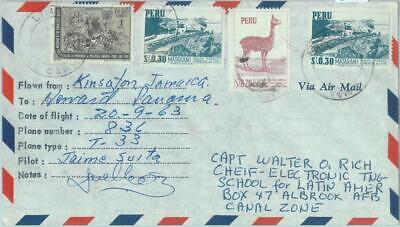 PERU
S/0.30 MATARANI
PERU
PERU
S/0.30 MATARANI
Via Air Mail
Flown from: Kinston Jamaica.
To: Howard Panama
Date of flight: 20-9-63
Plane number: 836
Plane type: T-33
Pilot: Jaime
Notes:
CAPT WALTER O, RICH
CHEIF-ELECTRONIC TNG
SCHOOL for LATIN AMER
BOX 47 ALBROOK AFB
CANAL ZONE